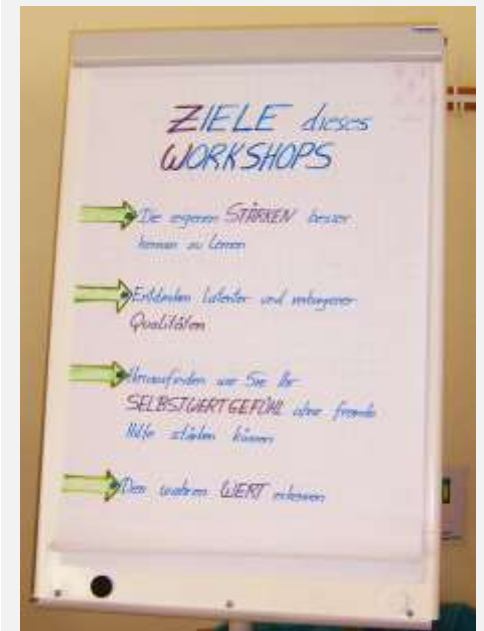 ZIELE dieses
WORKSHOPS
Die eigenen STÄRKEN besser
kennen zu lernen
Entdecken latenter und verborgener
Qualitäten
Herausfinden wie Sie Ihr
SELBSTWERTGEFÜHL ohne fremde
Hilfe stärken können
Den wahren WERT erkennen